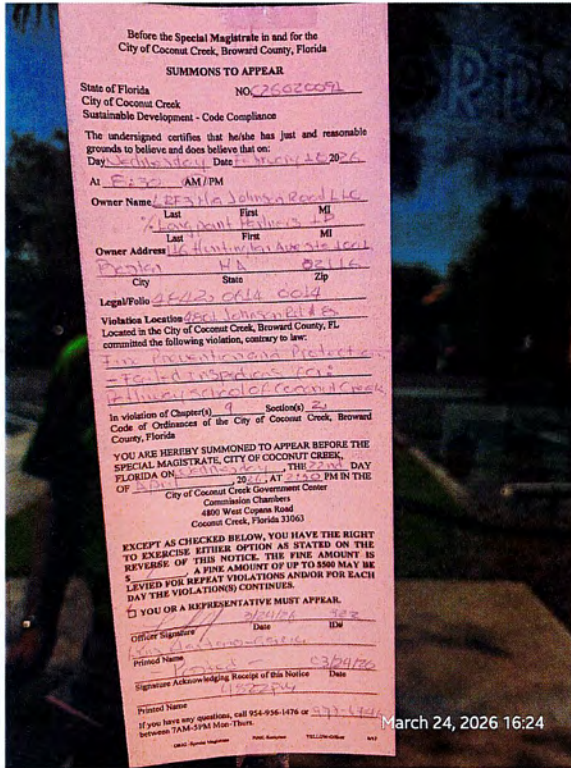 Before the Special Magistrate in and for the
City of Coconut Creek, Broward County, Florida
SUMMONS TO APPEAR
State of Florida NO. C26020091
City of Coconut Creek
Sustainable Development - Code Compliance
The undersigned certifies that he/she has just and reasonable
grounds to believe and does believe that on:
Day Wednesday Date February 18 20 26
At 8:30 (AM / PM
Owner Name Johnson Road LLC
Last First MI
% Longpoint Partners
Last First MI
Owner Address 116 Huntington Ave Ste 1001
Boston MA 02116
City State Zip
Legal/Folio 4842 0614 0014
Violation Location 4801 Johnson Rd # 8
Located in the City of Coconut Creek, Broward County, FL
committed the following violation, contrary to law:
Fire Prevention and Protection
- Failed Inspections for:
Pathway School of Coconut Creek
In violation of Chapter(s) 9 Section(s) 2
Code of Ordinances of the City of Coconut Creek, Broward
County, Florida
YOU ARE HEREBY SUMMONED TO APPEAR BEFORE THE
SPECIAL MAGISTRATE, CITY OF COCONUT CREEK,
FLORIDA ON Wednesday, THE 22nd DAY
OF April, 20 26, AT 2:30 PM IN THE
City of Coconut Creek Government Center
Commission Chambers
4800 West Copans Road
Coconut Creek, Florida 33063
EXCEPT AS CHECKED BELOW, YOU HAVE THE RIGHT
TO EXERCISE EITHER OPTION AS STATED ON THE
REVERSE OF THIS NOTICE. THE FINE AMOUNT IS
$ . A FINE AMOUNT OF UP TO $500 MAY BE
LEVIED FOR REPEAT VIOLATIONS AND/OR FOR EACH
DAY THE VIOLATION(S) CONTINUES.
YOU OR A REPRESENTATIVE MUST APPEAR.
3/24/26
Officer Signature Date ID#
Printed Name
Posted - 03/24/26
Signature Acknowledging Receipt of this Notice Date
Printed Name
If you have any questions, call 954-956-1476 or
between 7AM-5PM Mon-Thurs.
March 24, 2026 16:24